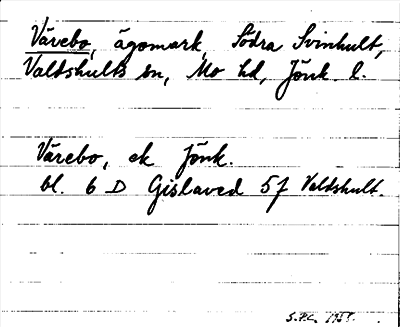 Värebo, ägomark, Södra Svinhult,
Valdshults sn, Mo hd, Jönk. l.
Värebo, ek Jönk.
bl. 6 D Gislaved 5f Valdshult.